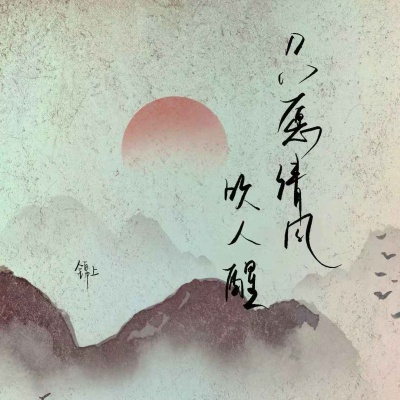 只愿清风
吹人醒
锦上